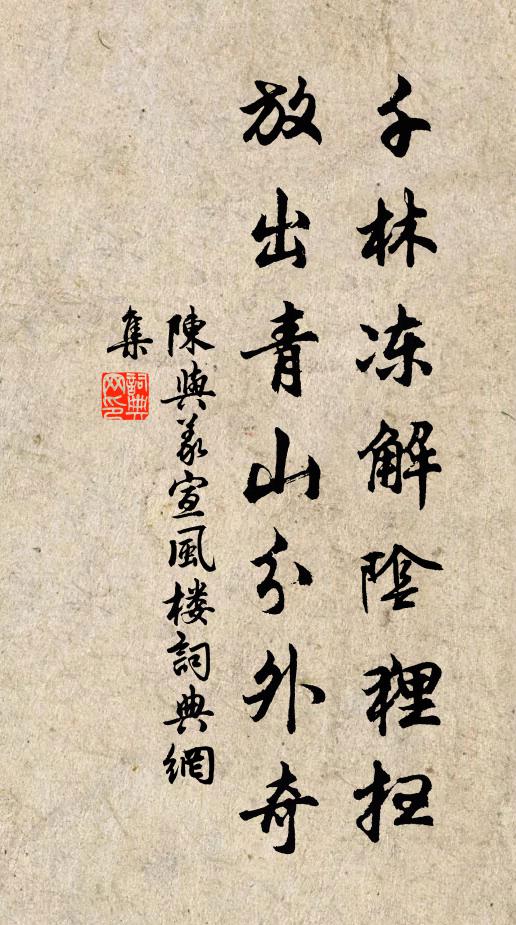 千林冻解陰狸扫
放出青山分外奇
陳與義宣風楼詞典網
集
詞典
网印